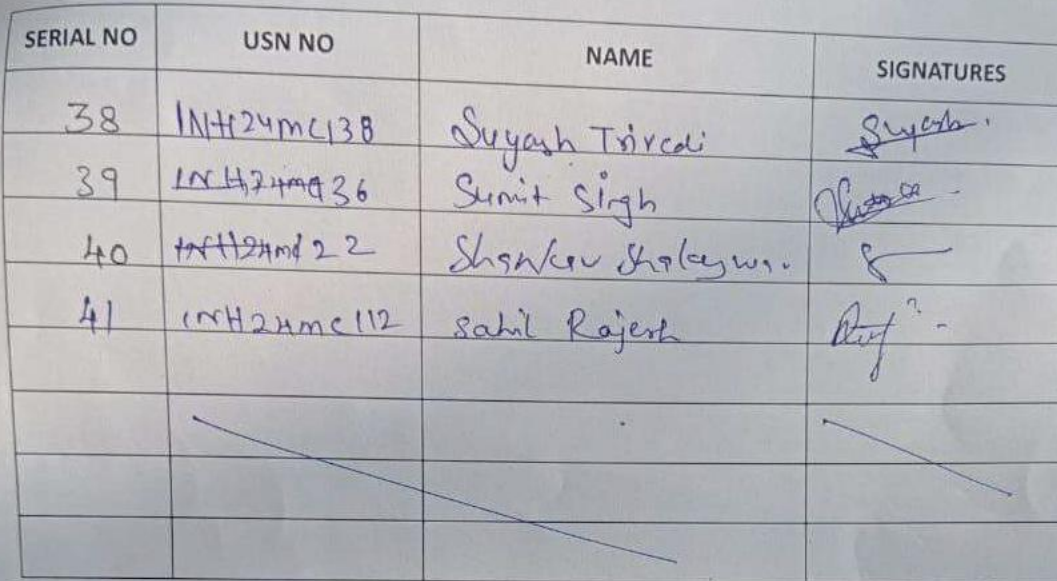 SERIAL NO USN NO NAME SIGNATURES
38 1NH24MC138 Suyash Trivedi Suyash.
39 1NH24MC136 Sumit Singh
40 Shankar
41 1NH24MC112 Sahil Rajesh